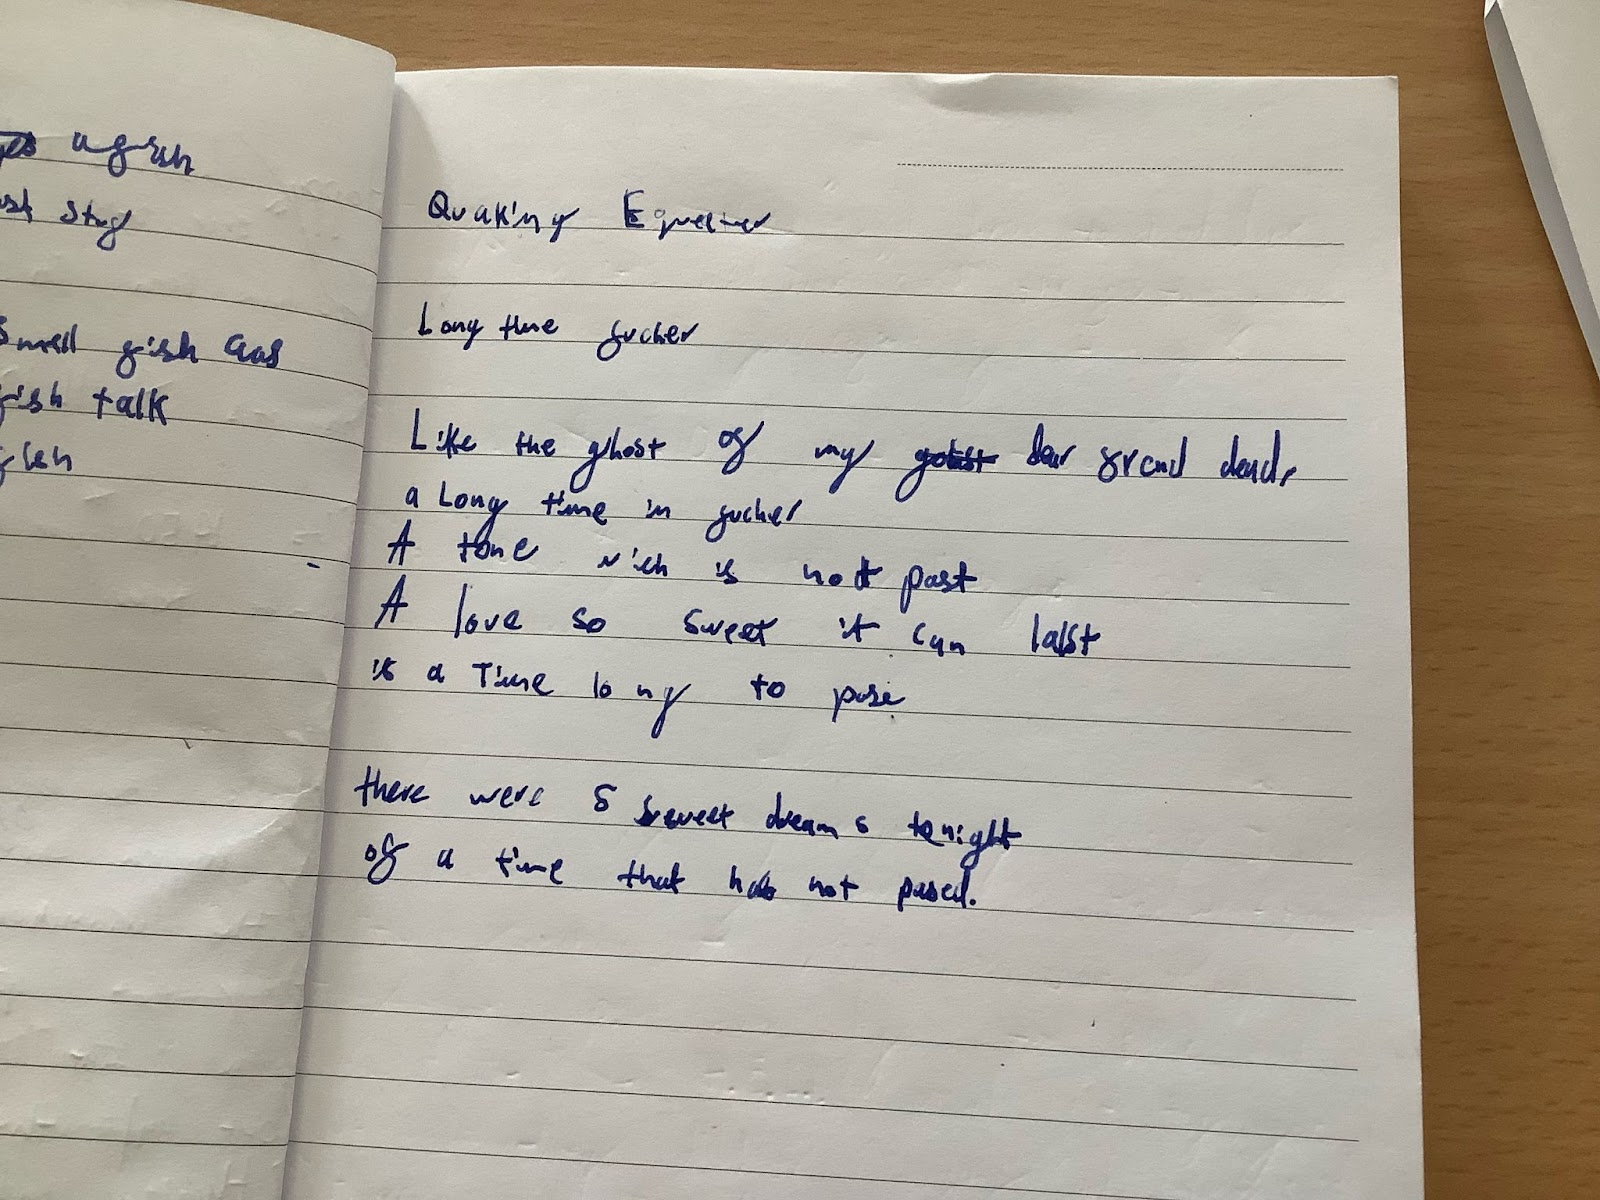 a gish
stug
Small gish Gas
gish talk
gish
Quaking
Long time fucher
Like the ghost of my dear frend dead,
a Long time in fucher
A tone wich is nott past
A love so sweet it can last
is a Time long to pase
there were 5 sweet dreams tonight
of a time that has not pased.